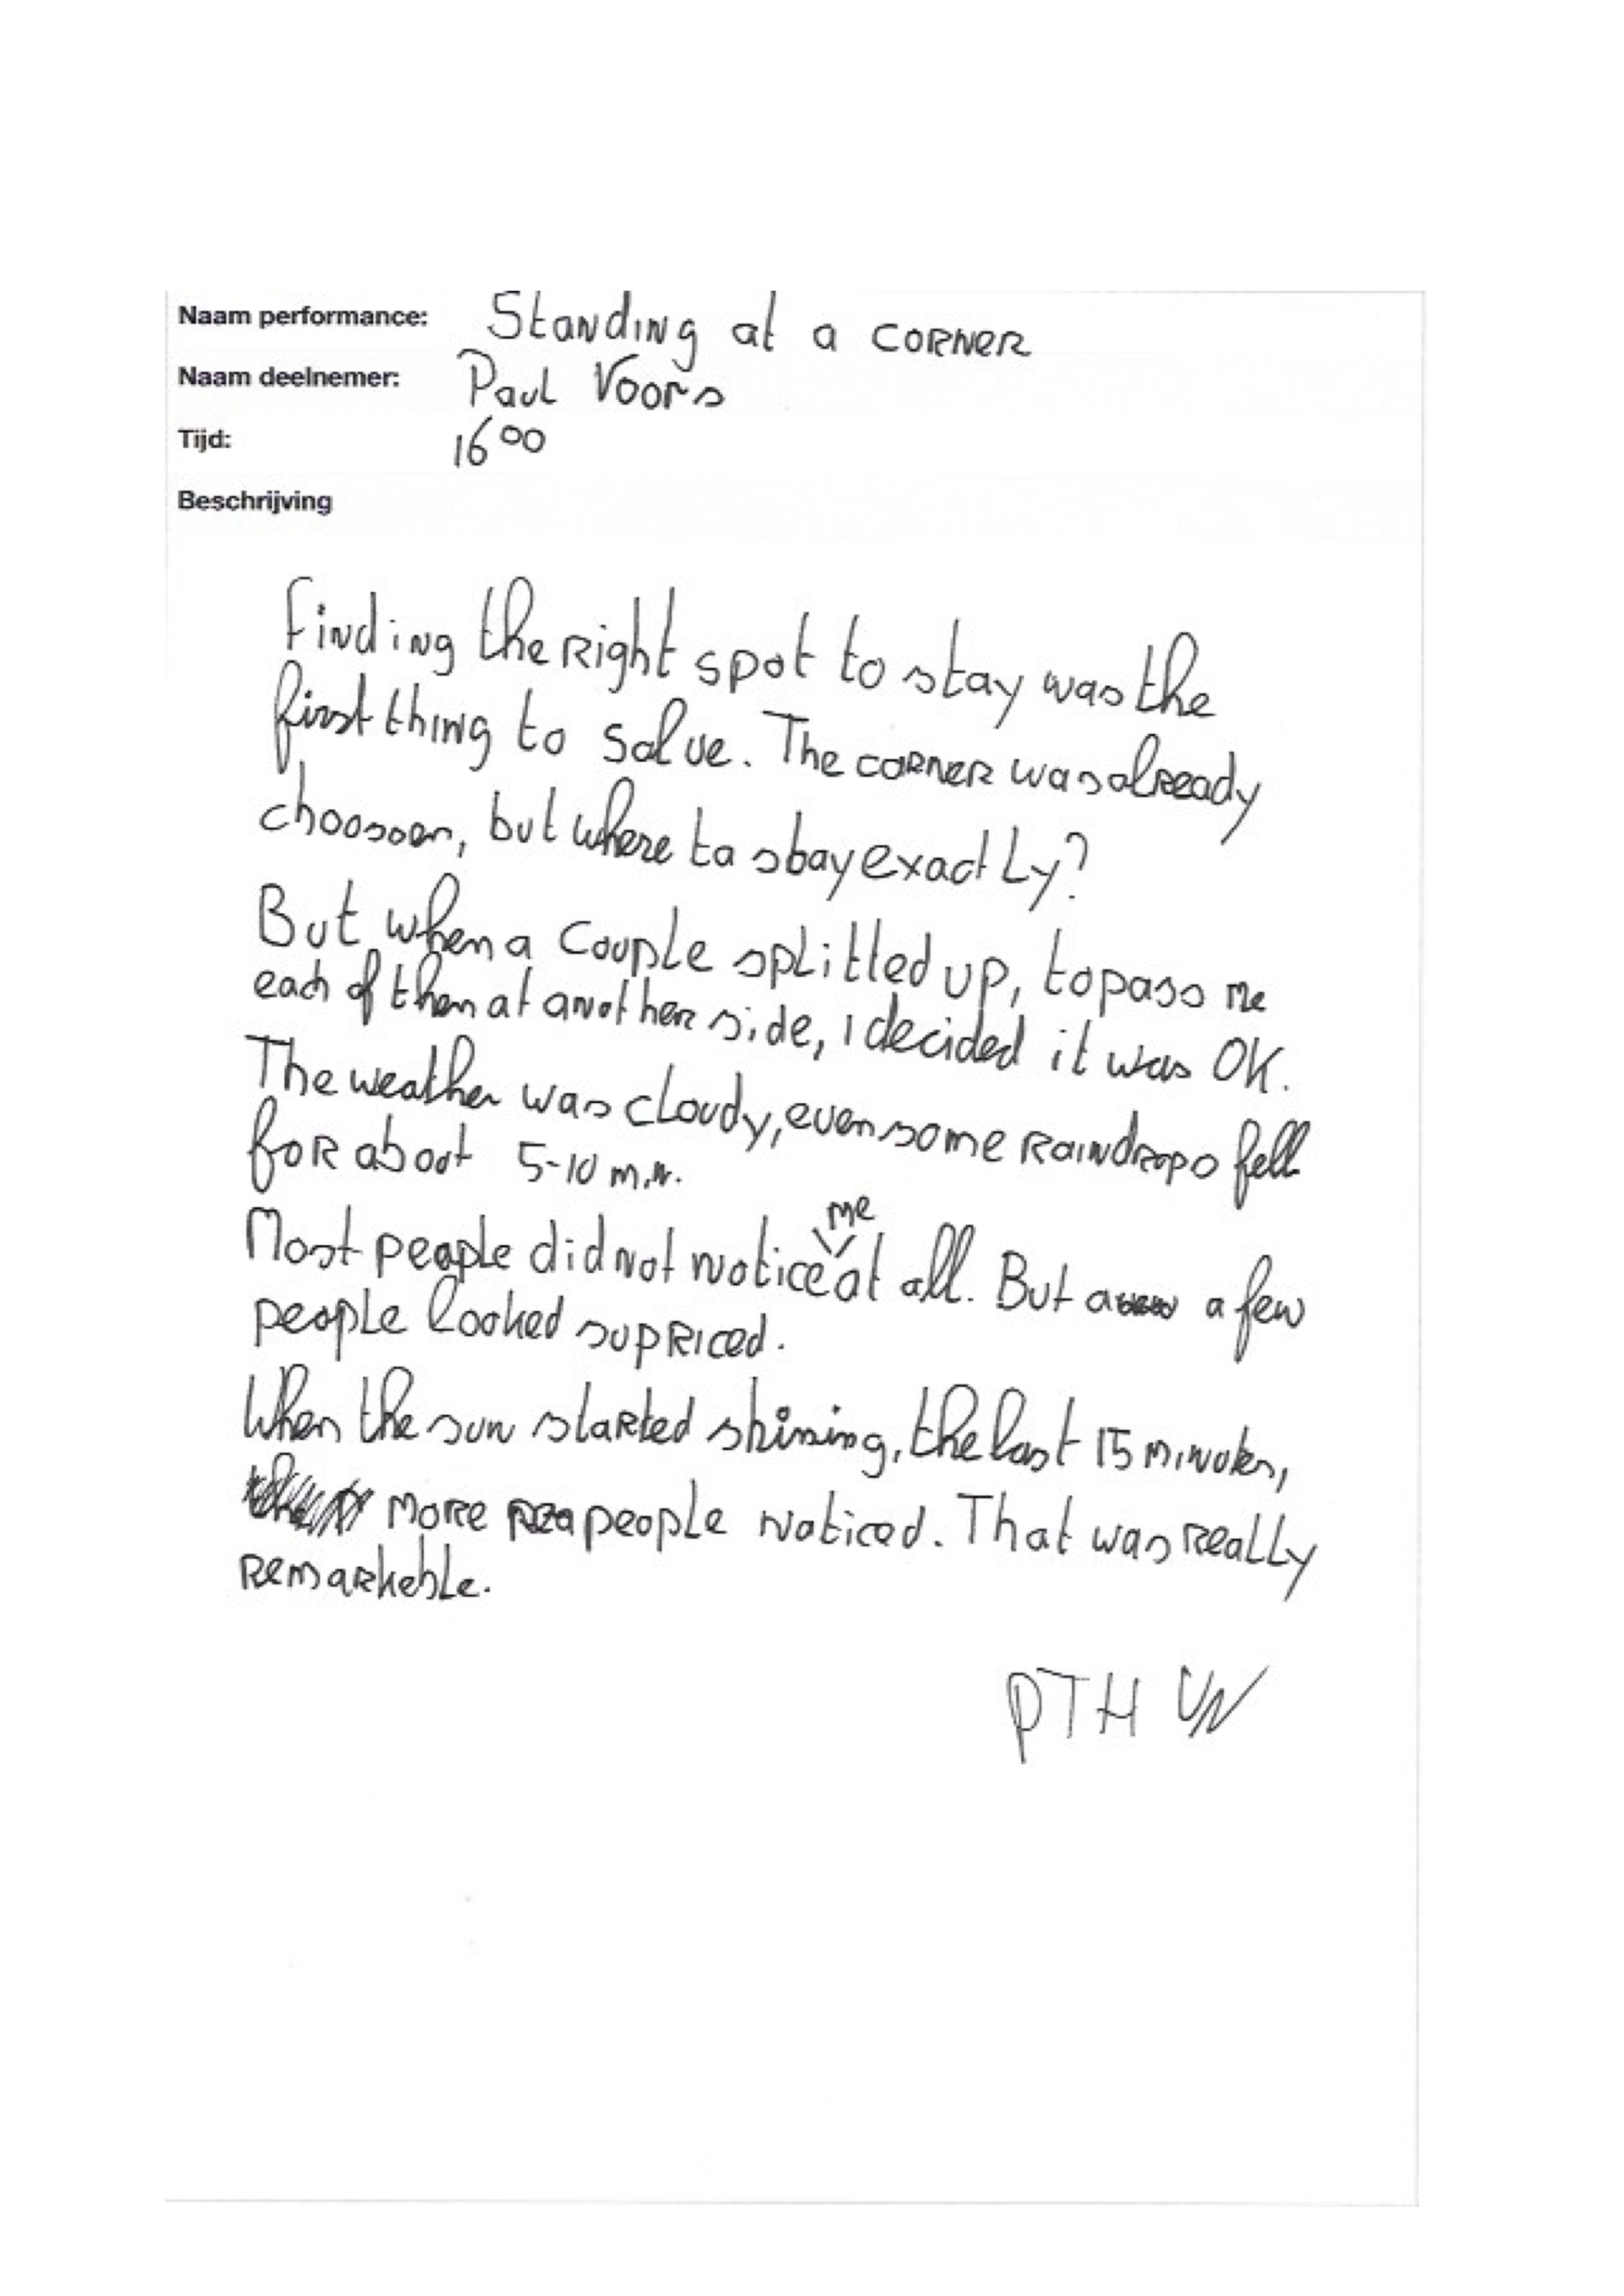 Naam performance: Standing at a corner
Naam deelnemer: Paul Voors
Tijd: 16 00
Beschrijving
Finding the right spot to stay was the
first thing to solve. The corner was already
choosen, but where to stay exactly?
But when a couple splitted up, to pass me
each of them at another side, I decided it was OK.
The weather was cloudy, even some raindrops fell
for about 5-10 min.
Most people did not notice me at all. But a few
people looked supriced.
When the sun started shining, the last 15 minutes,
more people noticed. That was really
remarkeble.
PTH